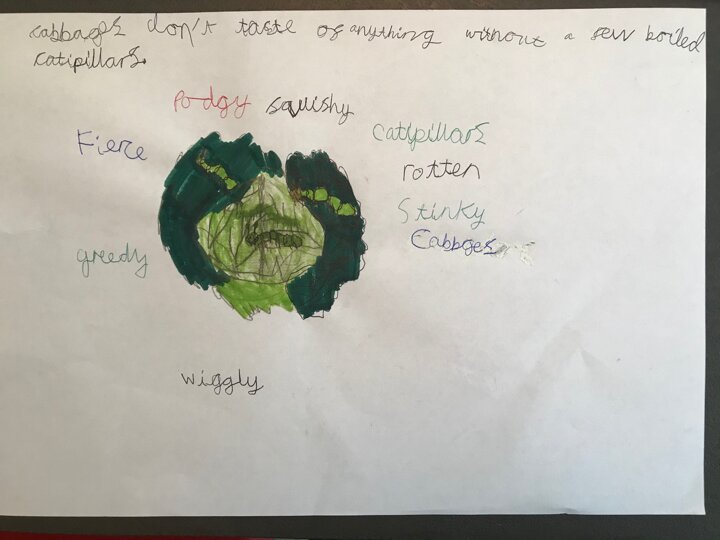 cabbages don't taste of anything without a few boiled
catipillars.
Podgy squishy
Fierce
catipillars
rotten
Stinky
Cabbges
greedy
wiggly